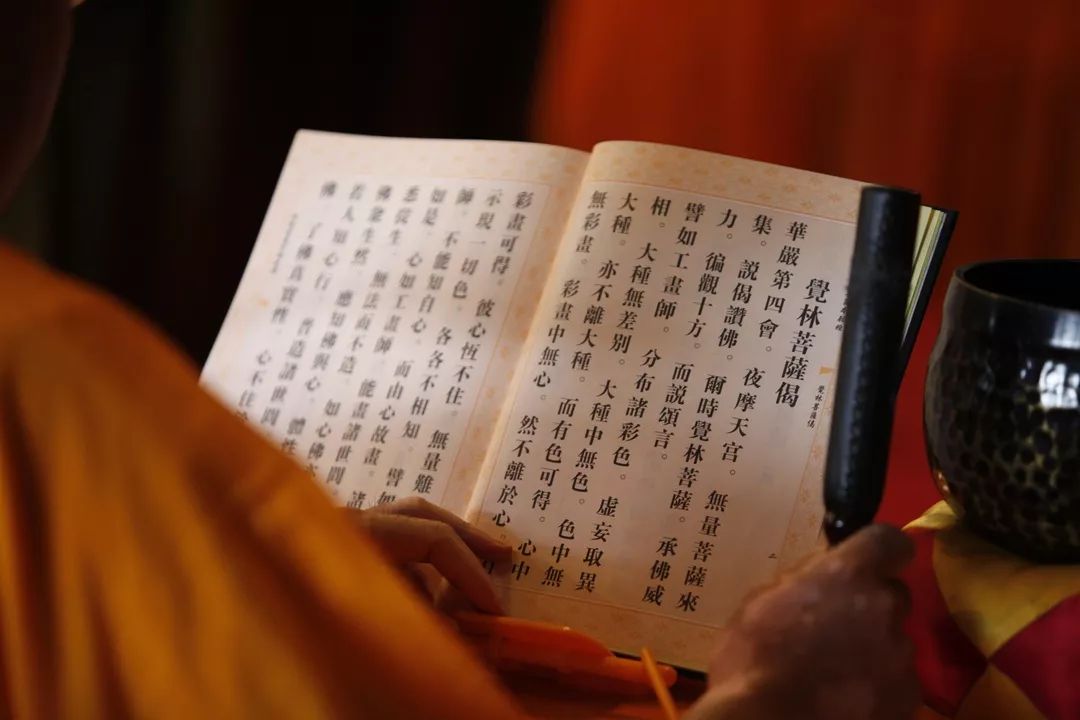 覺林菩薩偈
覺林菩薩偈
華嚴第四會。夜摩天宮。無量菩薩來
集。說偈讚佛。爾時覺林菩薩。承佛威
力。徧觀十方。而說頌言。
譬如工畫師。分布諸彩色。虛妄取異
相。大種無差別。大種中無色。色中無
大種。亦不離大種。而有色可得。心中
無彩畫。彩畫中無心。然不離於心。
二
彩畫可得。彼心恆不住。無量難
示現一切色。各各不相知。譬如
師。不能知自心。而由心故畫。諸
如是。心如工畫師。能畫諸世間
悉從生。無法而不造。如心佛亦
佛眾生然。應知佛與心。體性
若人知心行。普造諸世間
佛。了佛真實性。心不住